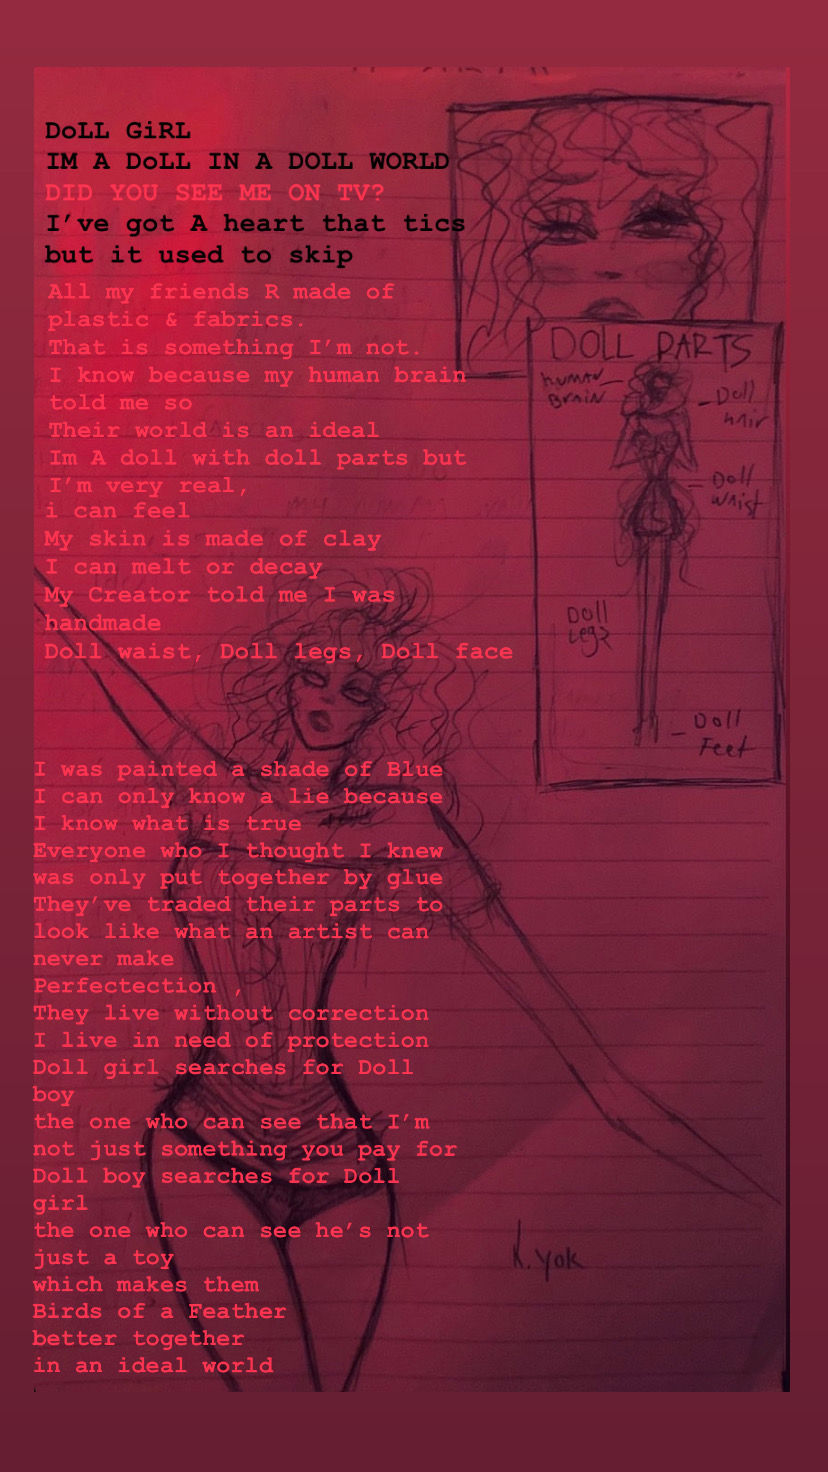 DoLL GiRL
IM A DoLL IN A DOLL WORLD
DID YOU SEE ME ON TV?
I’ve got A heart that tics
but it used to skip
All my friends R made of
plastic & fabrics.
That is something I’m not.
I know because my human brain
told me so
Their world is an ideal
Im A doll with doll parts but
I’m very real,
i can feel
My skin is made of clay
I can melt or decay
My Creator told me I was
handmade
Doll waist, Doll legs, Doll face
I was painted a shade of Blue
I can only know a lie because
I know what is true
Everyone who I thought I knew
was only put together by glue
They’ve traded their parts to
look like what an artist can
never make
Perfectection ,
They live without correction
I live in need of protection
Doll girl searches for Doll
boy
the one who can see that I’m
not just something you pay for
Doll boy searches for Doll
girl
the one who can see he’s not
just a toy
which makes them
Birds of a Feather
better together
in an ideal world
DOLL PARTS
HUMAN
BRAIN
Doll
hair
Doll
waist
Doll
Legs
Doll
Feet
K.Yok